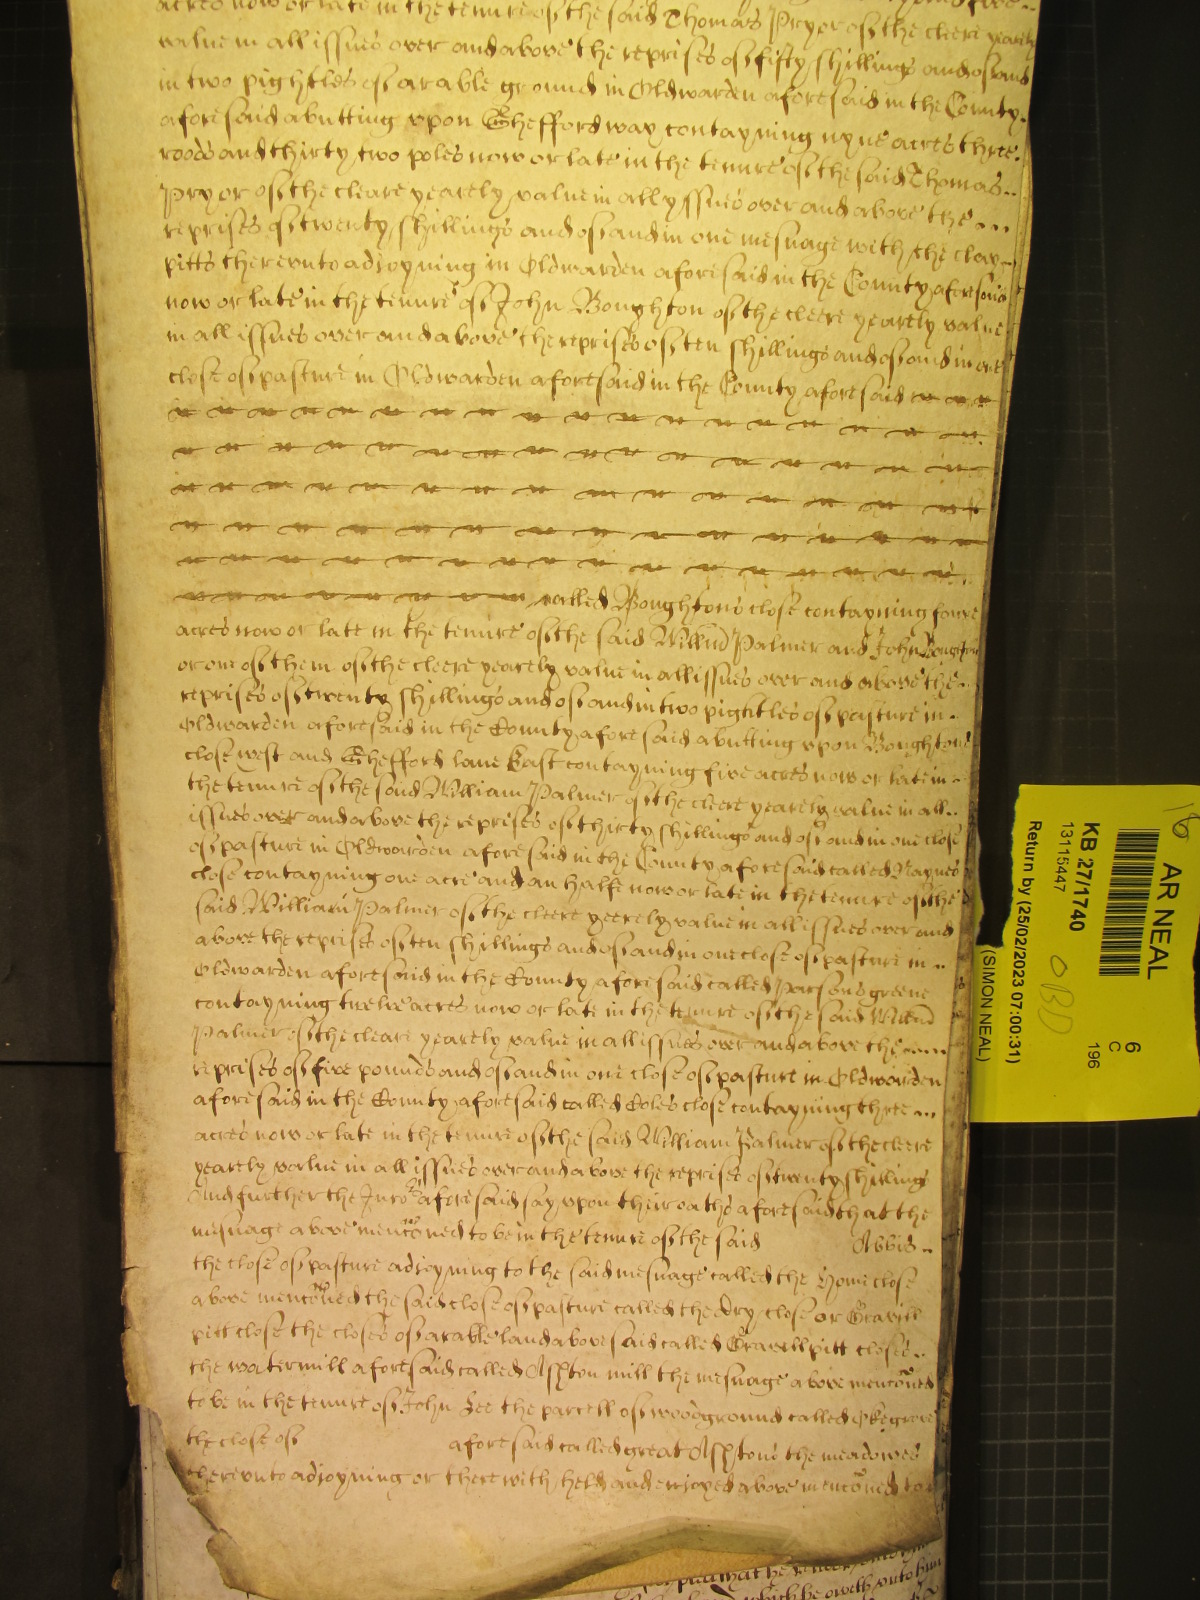 acres now or late in the tenure of the said Thomas Pryor of the cleere yearely
value in all issues over and above the reprises of fifty shillings and of and
in two pightles of arable ground in Oldwarden aforesaid in the County
aforesaid abutting vpon Shefford way contayning nyne acres three
roods and thirty two poles now or late in the tenure of the said Thomas
Pryor of the cleare yearely value in all yssues over and above the
reprises of twenty shillings and of and in one mesuage with the clay
pitts therevnto adjoyning in Oldwarden aforesaid in the County aforesaid
now or late in the tenure of John Boughton of the cleere yearely value
in all issues over and above the reprises of ten shillings and of and in one
close of pasture in Oldwarden aforesaid in the County aforesaid
called Boughtons close contayning foure
acres now or late in the tenure of the said Willm̃ Palmer and John Boughton
or one of them of the cleere yearely value in all issues over and above the
reprises of twenty shillings and of and in two pightles of pasture in
Oldwarden aforesaid in the County aforesaid abutting vpon Boughtons
close west and Shefford lane East contayning five acres now or late in
the tenure of the said William Palmer of the cleere yearely value in all
issues over and above the reprises of thirty shillings and of and in one close
of pasture in Oldwarden aforesaid in the County aforesaid called Naynes
close contayning one acre and an halfe now or late in the tenure of the
said William Palmer of the cleere yeerely value in all issues over and
above the reprises of ten shillings and of and in one close of pasture in
Oldwarden aforesaid in the County aforesaid called Parsons greene
contayning twelve acres now or late in the tenure of the said Willm̃
Palmer of the cleare yearely value in all issues over and above the
reprises of five pounds and of and in one close of pasture in Oldwarden
aforesaid in the County aforesaid called Coles close contayning three
acres now or late in the tenure of the said William Palmer of the cleere
yearely value in all issues over and above the reprises of twenty shillings
And further the Juro^rs aforesaid say vpon their oaths aforesaid that the
mesuage above menc̃oned to be in the tenure of the said Abbis
the close of pasture adjoyning to the said mesuage called the Home close
above menc̃oned the said close of pasture called the dry close or Gravill
pitt close the closes of arable land abovesaid called Gravell pitt closes
the watermill aforesaid called Ashton mill the mesuage above menc̃oned
to be in the tenure of John Lee the parcell of woodground called Okegrove
the close of aforesaid called great Ashtons the meadowes
therevnto adjoyning or therewith held and enjoyed above menc̃oned to
which he oweth vnto him
AR NEAL
6
C
196
KB 27/1740
13115447
Return by (25/02/2023 07:00:31)
(SIMON NEAL)